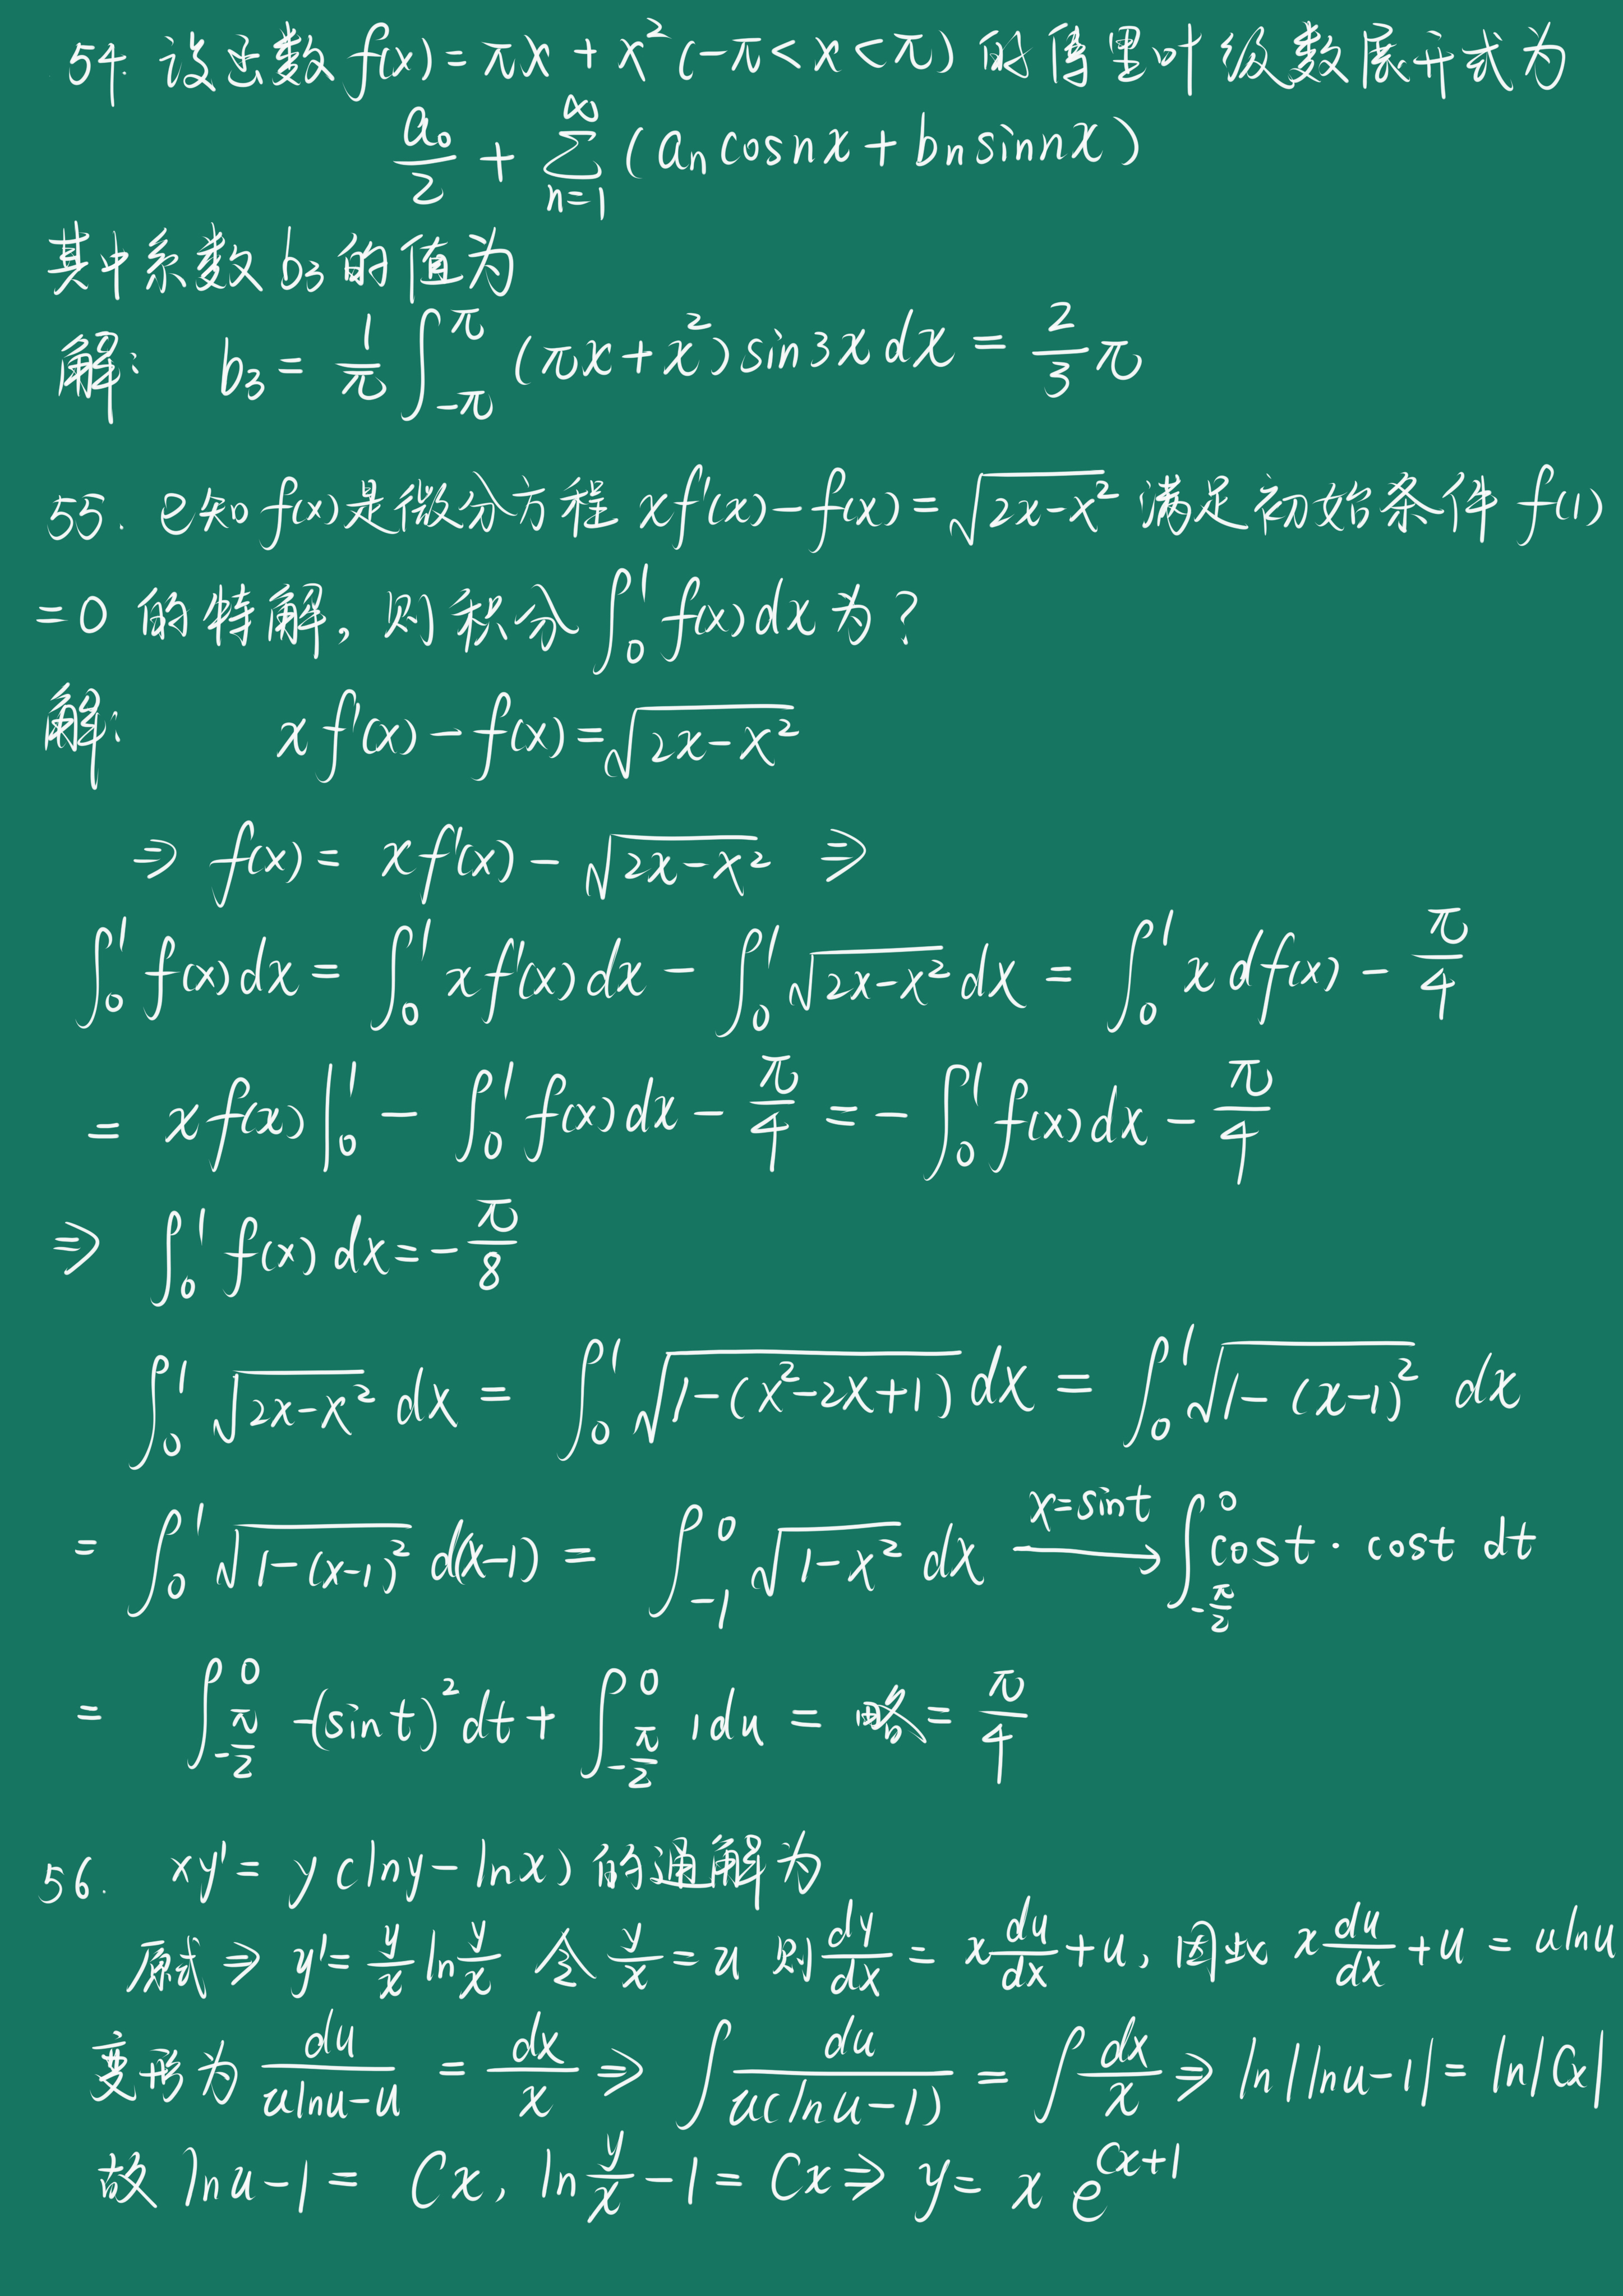 54. 设函数 f(x) = πx + x² (-π < x < π) 的傅里叶级数展开式为
a₀/2 + ∑_{n=1}^{∞} (aₙ cosnx + bₙ sinnx)
其中系数 b₃ 的值为
解: b₃ = 1/π ∫_{-π}^{π} (πx + x²) sin3x dx = 2/3 π
55. 已知 f(x) 是微分方程 xf'(x) - f(x) = √(2x-x²) 满足初始条件 f(1)
= 0 的特解, 则积分 ∫_0^1 f(x)dx 为?
解: xf'(x) - f(x) = √(2x-x²)
⇒ f(x) = xf'(x) - √(2x-x²) ⇒
∫_0^1 f(x)dx = ∫_0^1 xf'(x)dx - ∫_0^1 √(2x-x²) dx = ∫_0^1 x df(x) - π/4
= xf(x)|_0^1 - ∫_0^1 f(x)dx - π/4 = -∫_0^1 f(x)dx - π/4
⇒ ∫_0^1 f(x)dx = -π/8
∫_0^1 √(2x-x²) dx = ∫_0^1 √(1-(x²-2x+1)) dx = ∫_0^1 √(1-(x-1)²) dx
= ∫_0^1 √(1-(x-1)²) d(x-1) = ∫_{-1}^0 √(1-x²) dx x=sint → ∫_{-π/2}^0 cost · cost dt
= ∫_{-π/2}^0 -(sint)² dt + ∫_{-π/2}^0 1du = 略 = π/4
56. xy' = y(lny - lnx) 的通解为
原式 ⇒ y' = y/x ln y/x 令 y/x = u 则 dy/dx = x du/dx + u, 因此 x du/dx + u = ulnu
变形为 du/(ulnu-u) = dx/x ⇒ ∫ du/(u(lnu-1)) = ∫ dx/x ⇒ ln|lnu-1| = ln|Cx|
故 lnu-1 = Cx, ln y/x - 1 = Cx ⇒ y = x e^{Cx+1}